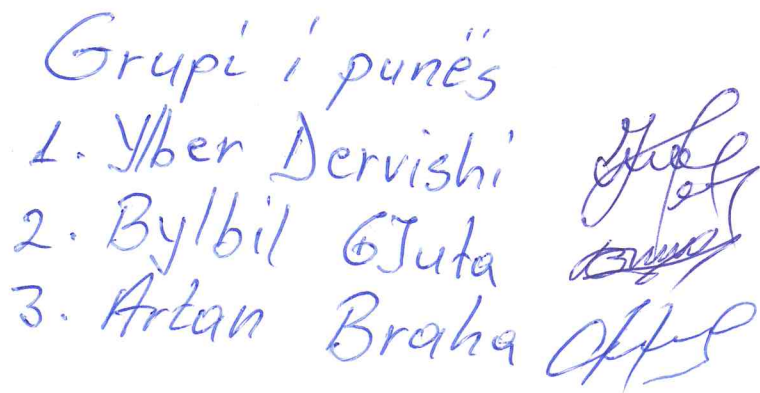 Grupi i punës
1. Ylber Dervishi
2. Bylbil GJuta
3. Artan Braha